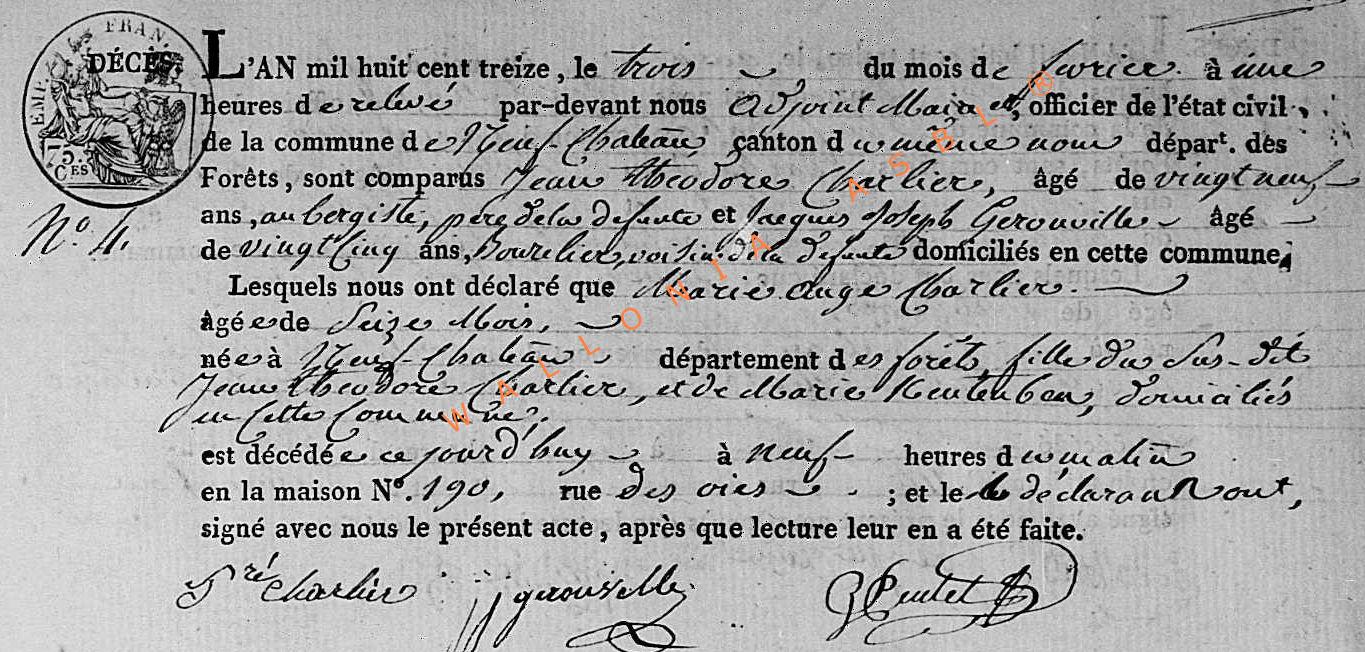 EMP. FRAN.
DÉCÈS
75. CES
L'AN mil huit cent treize, le trois du mois de fevrier. à une
heures de relevé par-devant nous Adjoint Maire et, officier de l'état civil,
de la commune de Neuf-Chateau, canton du même nom dépar.t des
Forêts, sont comparus Jean theodore Charlier, âgé de vingt neuf
N.o 4.
ans, aubergiste, père de la defunte et Jacques Joseph Gerouville âgé
de vingt Cinq ans, Bourelier, voisin de la defunte domiciliés en cette commune,
Lesquels nous ont déclaré que Marie ange Charlier.
âgée de Seize Mois,
née à Neuf-Chateau département des forêts, fille du Sus-dit
Jean theodore Charlier, et de Marie domiciliés
en Cette Commune,
est décédée ce jourd'huy à neuf heures du matin
en la maison N.o 190, rue des oies ; et les déclarants ont,
signé avec nous le présent acte, après que lecture leur en a été faite.
Charlier jj gerouville
WALLONIA ASBL ®